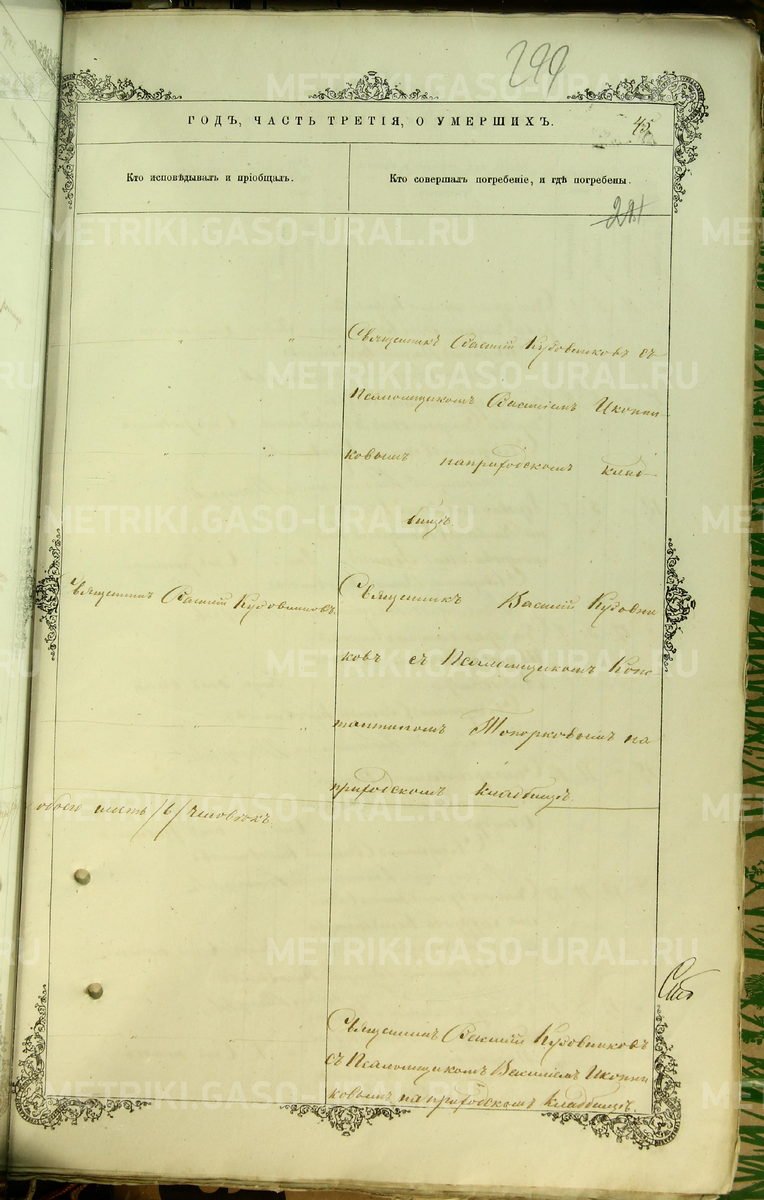 299
ГОДЪ, ЧАСТЬ ТРЕТІЯ, О УМЕРШИХЪ.
45
Кто исповѣдывалъ и пріобщалъ.
Кто совершалъ погребеніе, и гдѣ погребены.
Священникъ Василій Кудовниковъ съ
Псаломщикомъ Василіемъ Иконни
ковымъ наприходскомъ клад
бищѣ.
Священникъ Василій Кудовниковъ.
Священникъ Василій Кудовни
ковъ съ Псаломщикомъ Конс
тантиномъ Топорковымъ на
приходскомъ кладбищѣ.
обоего шесть /6/ человѣкъ.
Священникъ Василій Кудовниковъ
съ Псаломщикомъ Василіемъ Иконни
ковымъ на приходскомъ кладбищѣ.
METRIKI.GASO-URAL.RU